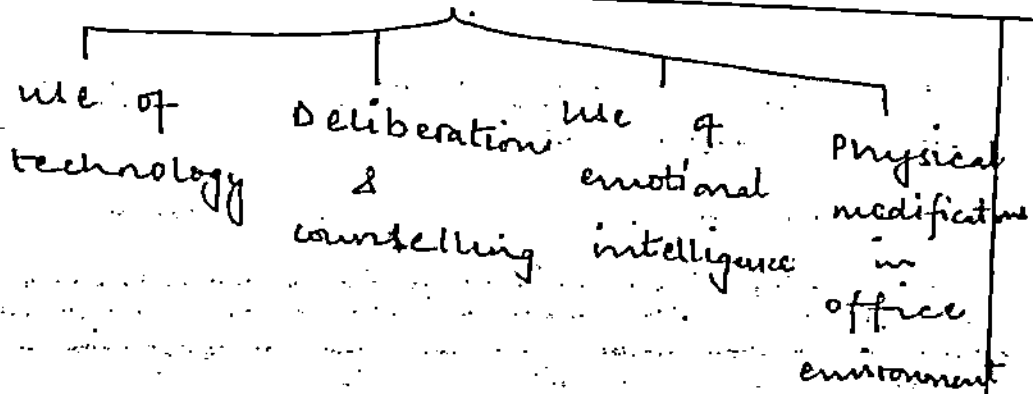 use of
technology
Deliberation
&
counselling
use of
emotional
intelligence
Physical
modifications
in
office
environment